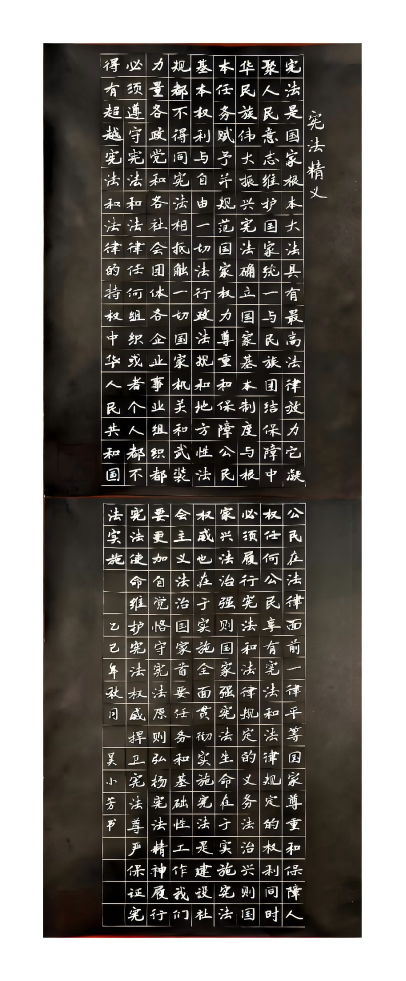 宪法精义
宪法是国家根本大法具有最高法律效力它凝
聚人民意志维护国家统一与民族团结保障中
华民族伟大振兴宪法确立国家基本制度与根
本任务赋予并规范国家权力尊重和保障公民
基本权利与自由一切法行政法规和地方性法
规都不得同宪法相抵触一切国家机关和武装
力量各政党和各社会团体各企业事业组织都
必须遵守宪法和法律任何组织或者个人都不
得有超越宪法和法律的持权中华人民共和国
公民在法律面前一律平等国家尊重和保障人
权任何公民享有宪法和法律规定的权利同时
必须履行宪法和法律规定的义务法治兴则国
家兴法治强则国家强宪法生命在于实施宪法
权威也在于实施全面贯彻实施宪法是建设社
会主义法治国家首要任务和基础性工作我们
要更加自觉恪守宪法原则弘扬宪法精神履行
宪法使命维护宪法权威捍卫宪法尊严保证宪
法实施 乙巳年秋月 吴小芳书